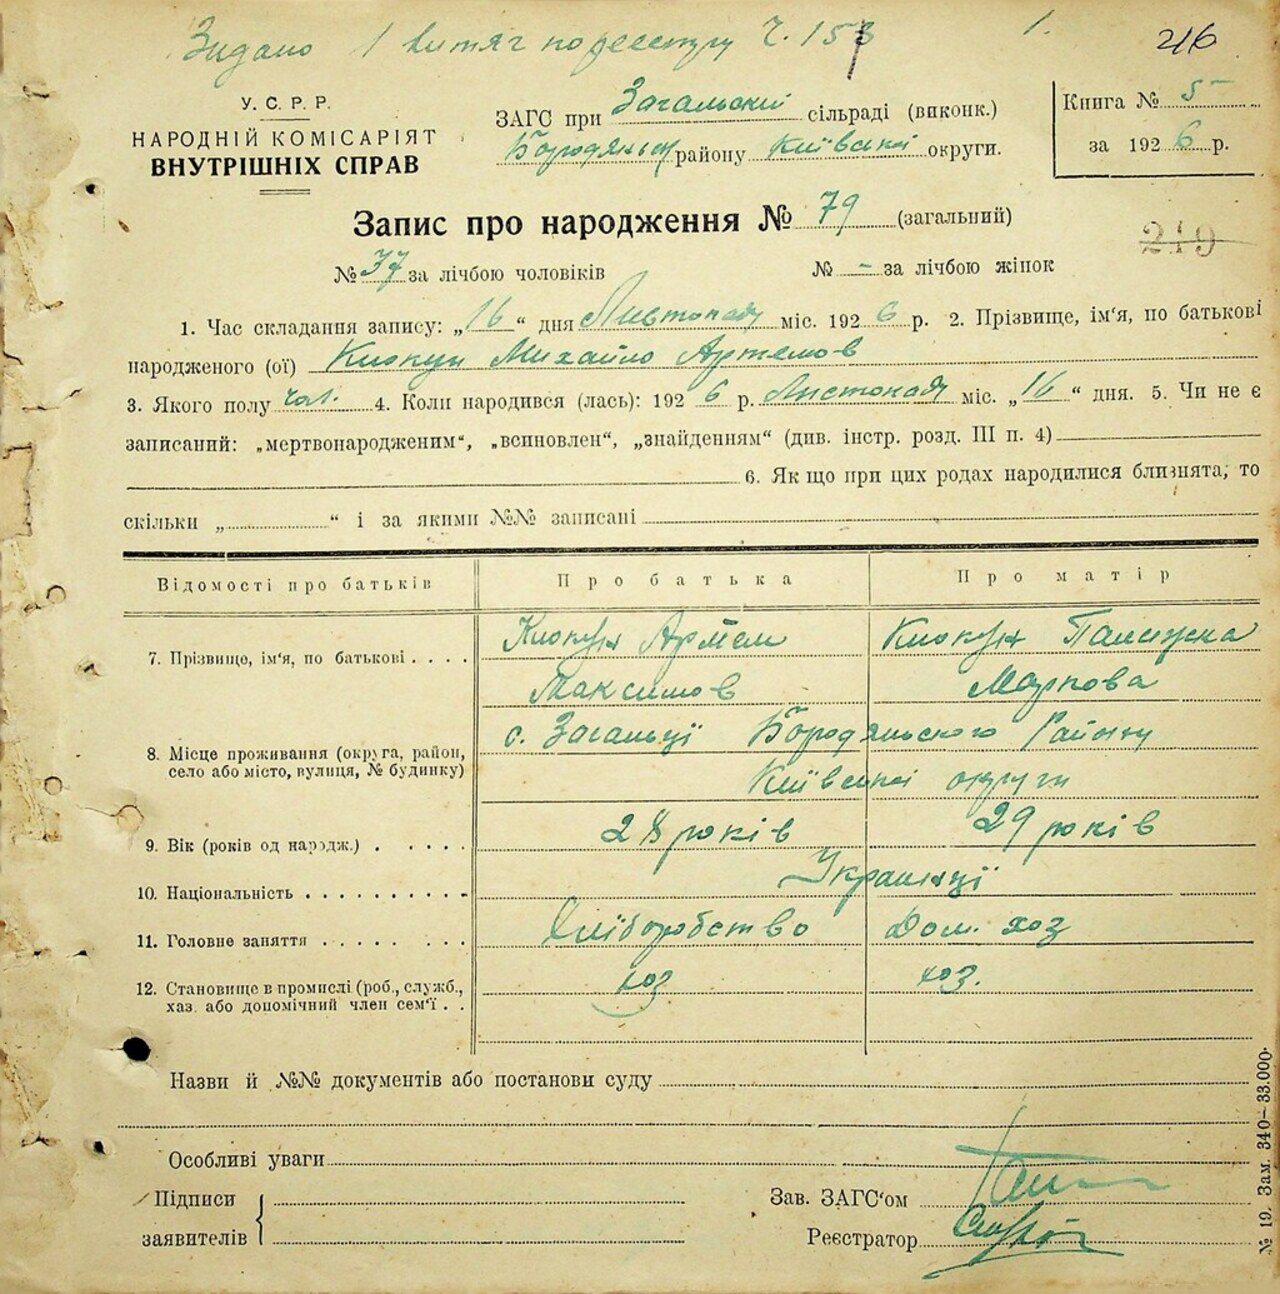 Видано 1 витяг по реєстру Ч. 153
1.
216
У. С. Р. Р.
НАРОДНІЙ КОМІСАРІЯТ
ВНУТРІШНІХ СПРАВ
ЗАГС при Загальській сільраді (виконк.)
Бородянськ району Київської округи.
Книга № 5
за 1926 р.
Запис про народження № 79 (загальний)
219
№ 37 за лічбою чоловіків № - за лічбою жінок
1. Час складання запису: „16“ дня Листопаду міс. 1926 р. 2. Прізвище, ім'я, по батькові
народженого (ої) Клокун Михайло Артемов
3. Якого полу чол. 4. Коли народився (лась): 1926 р. Листопаду міс. „16“ дня. 5. Чи не є
записаний: „мертвонародженим“, „всиновлен“, „знайденням“ (див. інстр. розд. III п. 4)
6. Як що при цих родах народилися близнята, то
скільки „ “ і за якими №№ записані
Відомості про батьків Про батька Про матір
7. Прізвище, ім'я, по батькові . . . . Клокун Артем Клокун
Максимов Маркова
8. Місце проживання (округа, район, с. Загальці Бородянського Району
село або місто, вулиця, № будинку) Київської округи
9. Вік (років од народж.) . . . . . 28 років 29 років
10. Національність . . . . . . . . . . Українці
11. Головне заняття . . . . . . . . Хліборобство Дом. хоз
12. Становище в промислі (роб., службл., хоз хоз.
хаз. або допомічний член сем'ї . .
Назви й №№ документів або постанови суду
Особливі уваги
Підписи
заявителів
Зав. ЗАГС'ом
Реєстратор
№ 19. Зам. 340—33.000.